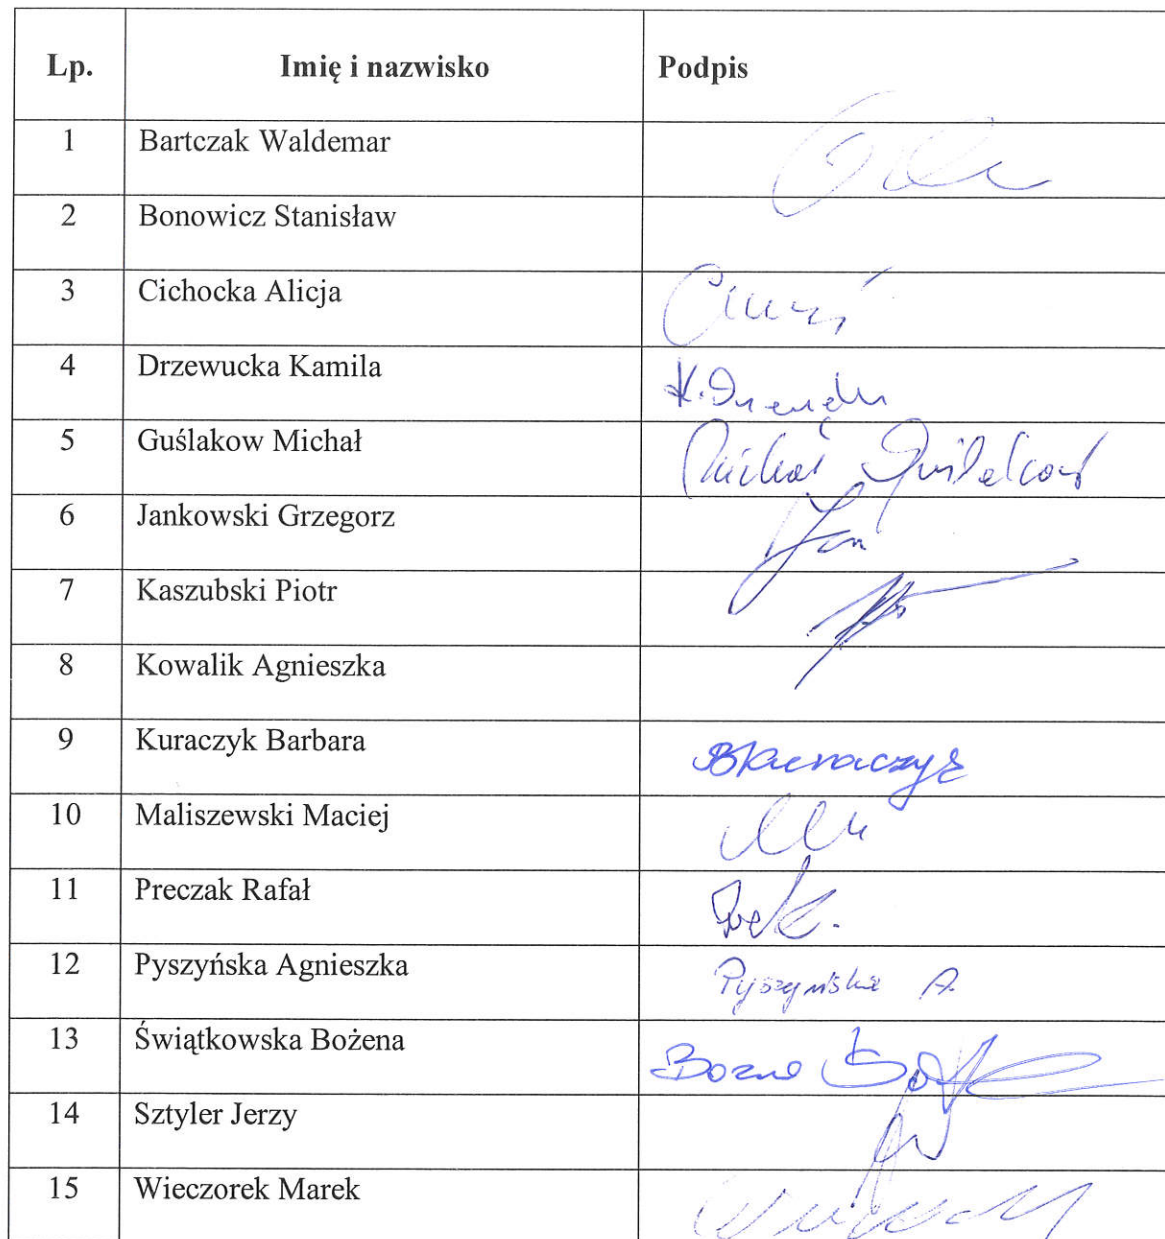 Lp. Imię i nazwisko Podpis
1 Bartczak Waldemar
2 Bonowicz Stanisław
3 Cichocka Alicja
4 Drzewucka Kamila
5 Guślakow Michał Michał Guślakow
6 Jankowski Grzegorz
7 Kaszubski Piotr
8 Kowalik Agnieszka
9 Kuraczyk Barbara BKuraczyk
10 Maliszewski Maciej
11 Preczak Rafał
12 Pyszyńska Agnieszka Pyszyńska A.
13 Świątkowska Bożena
14 Sztyler Jerzy
15 Wieczorek Marek